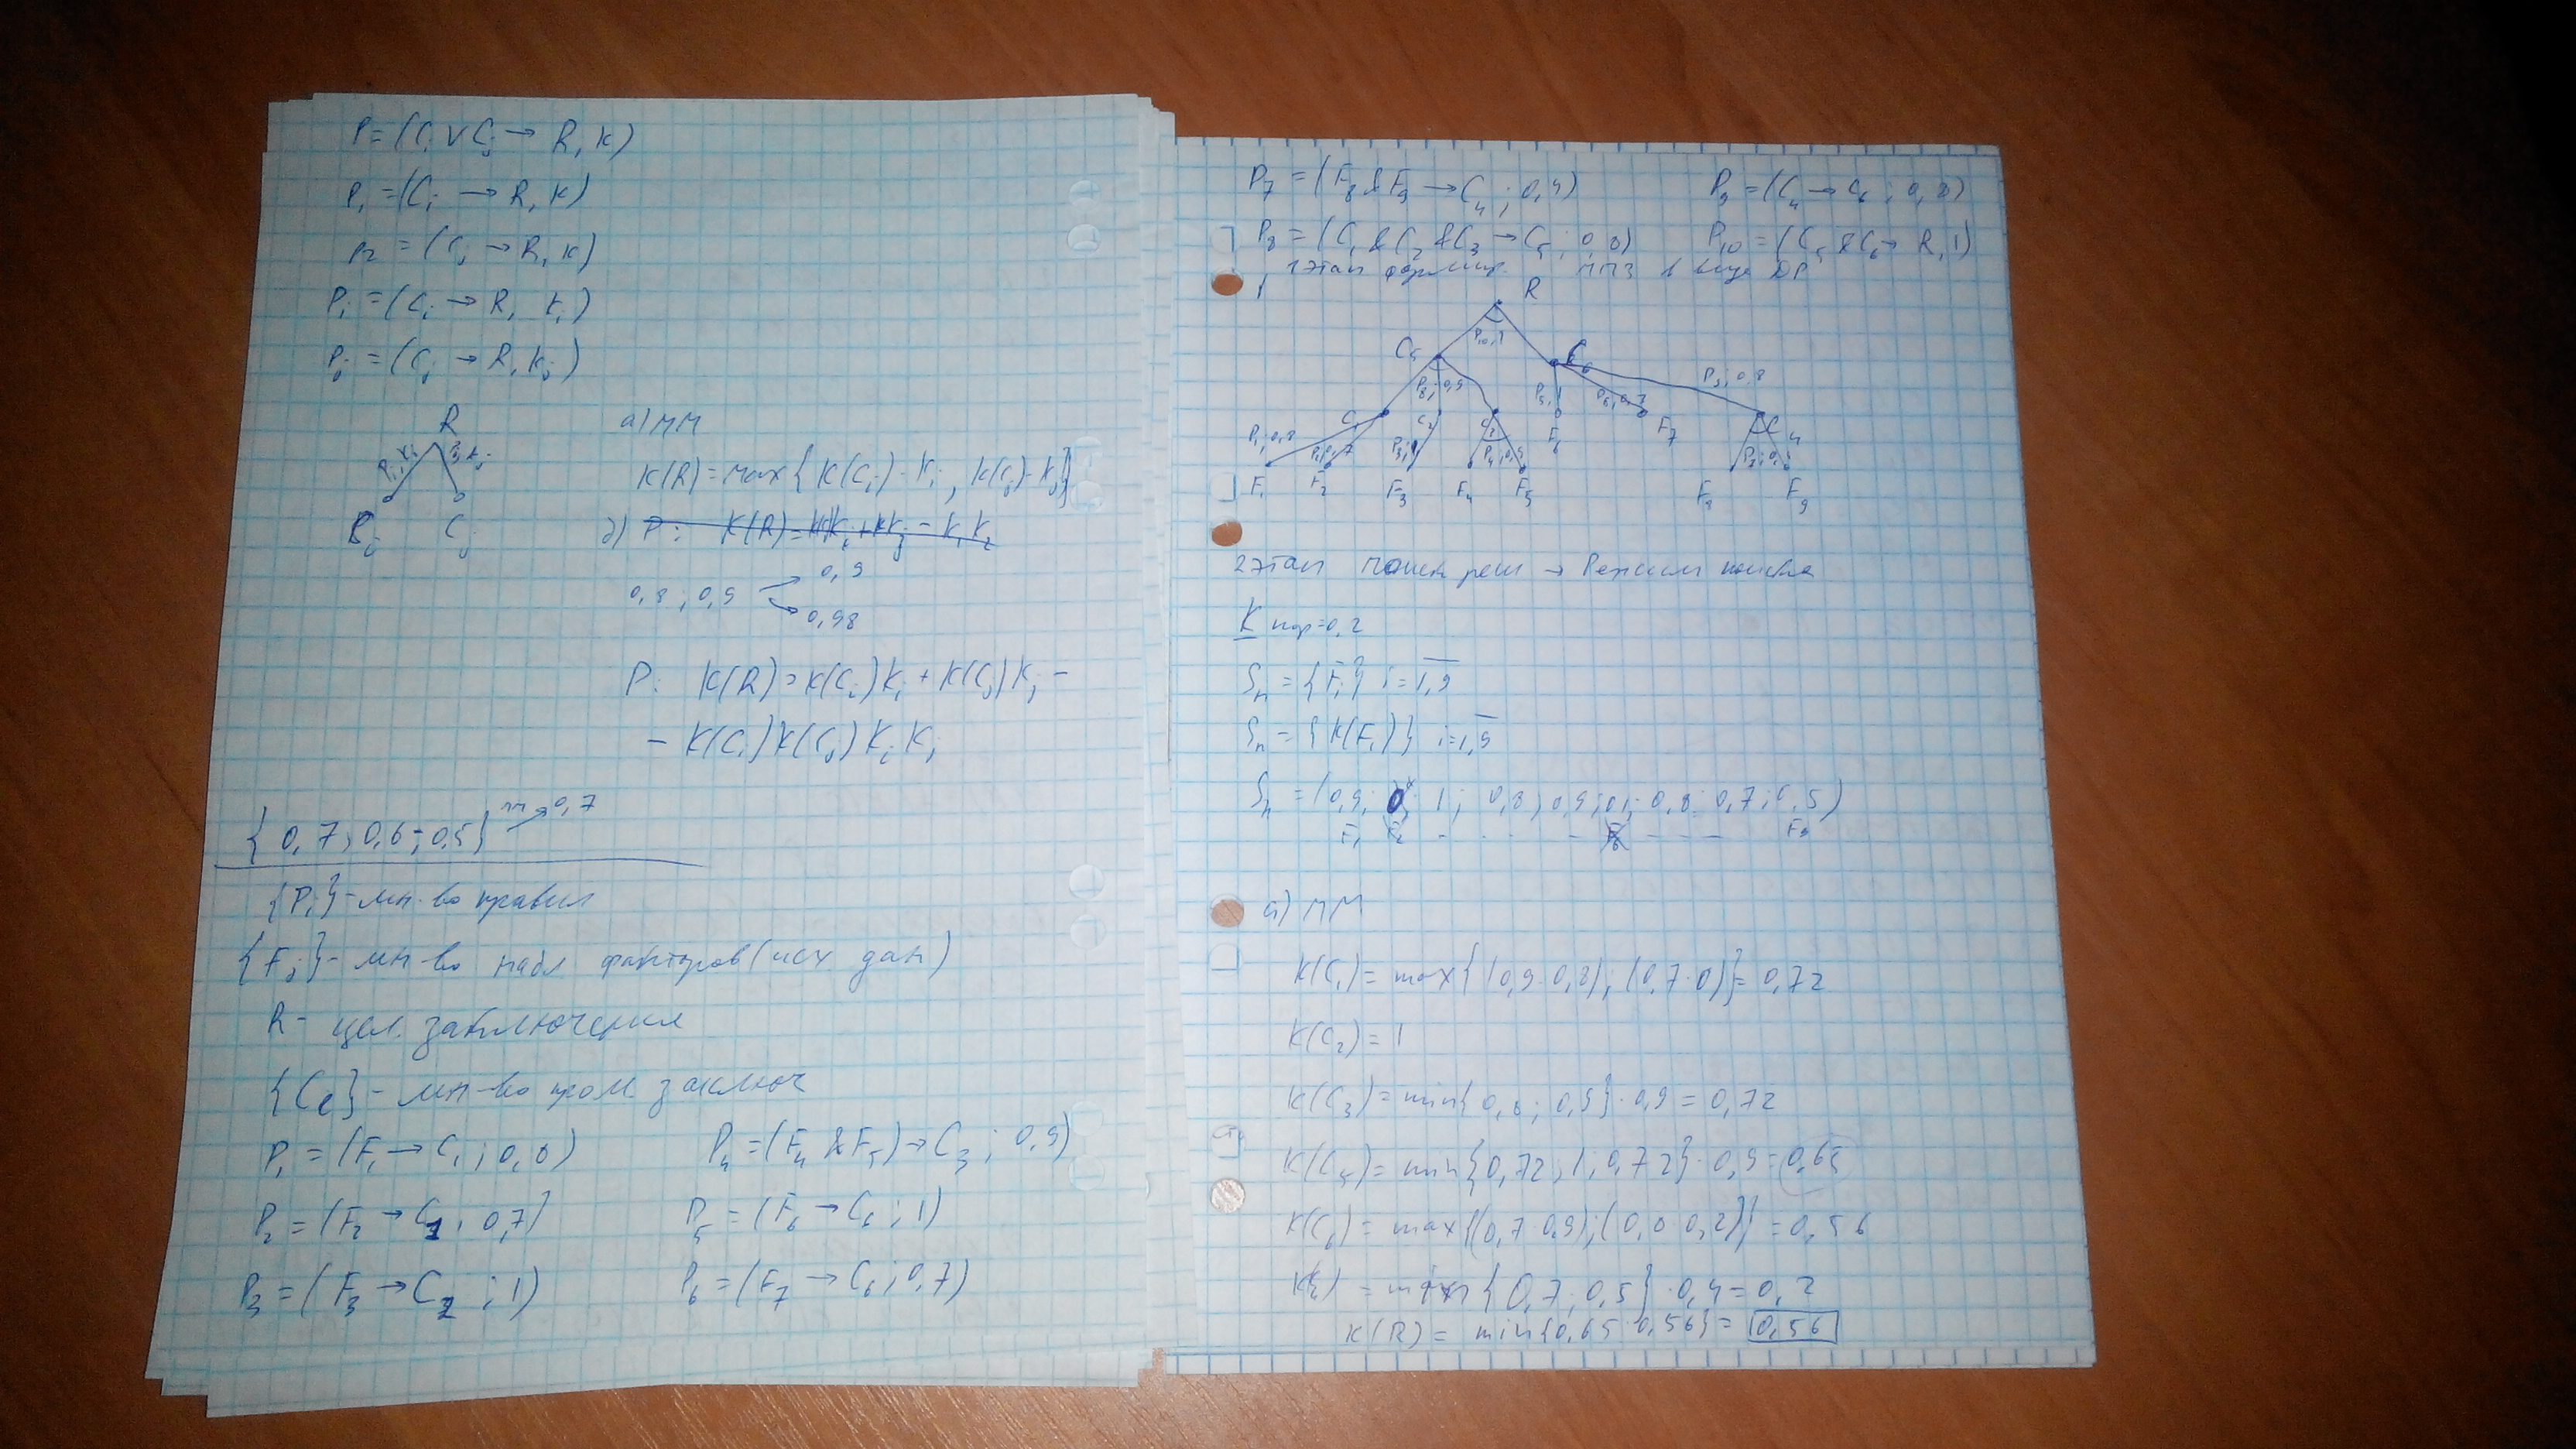 P = (Ci ∨ Cj → R, K)
P1 = (Ci → R, K)
P2 = (Cj → R, K)
Pi = (Ci → R, Ki)
Pj = (Cj → R, Kj)
R
Pi, Ki
Pj, Kj
Ci
Cj
а) ММ
K(R) = max{K(Ci)·Ki, K(Cj)·Kj}
б)
0,8, 0,9 → 0,9
→ 0,98
P: K(R) = K(Ci)Ki + K(Cj)Kj −
− K(Ci)K(Cj)KiKj
{0,7; 0,6; 0,5} → 0,7
{Pi} - мн-во правил
{Fj} - мн-во набл факторов (исх дан)
R - цел. заключения
{Ce} - мн-во пром. заключ
P1 = (F1 → C1; 0,8)
P4 = (F4 & F5) → C3; 0,9)
P2 = (F2 → C1; 0,7)
P5 = (F6 → C6; 1)
P3 = (F3 → C2; 1)
P6 = (F7 → C6; 0,7)
P7 = (F8 & F9 → C4; 0,4)
P9 = (C4 → C6; 0,8)
P8 = (C1 & C2 & C3 → C5; 0,9)
P10 = (C5 & C6 → R, 1)
1 этап формир. в виде ДР
R
P10, 1
C5
C6
P8, 0,9
P5, 1
P6, 0,7
P9; 0,8
C1
C2
C3
F6
F7
C4
P1; 0,8
P3; 1
P4; 0,9
F1
F2
F3
F4
F5
F8
F9
2 этап поиск реш → Режим поиска
K пор = 0,2
Sn = {Fi} i = 1,9
Sn = {K(Fi)} i = 1,9
Sn = (0,9; 0; 1; 0,8; 0,9; 0,1; 0,8; 0,7; 0,5)
F1 F2 - - - - - - F9
а) ММ
K(C1) = max{(0,9·0,8); (0,7·0)} = 0,72
K(C2) = 1
K(C3) = min{0,8; 0,9}·0,9 = 0,72
K(C5) = min{0,72; 1; 0,72}·0,9 = 0,65
K(C6) = max{(0,7·0,8); (0,8·0,2)} = 0,56
= min{0,7; 0,5}·0,4 = 0,2
K(R) = min{0,65 0,56} = 0,56